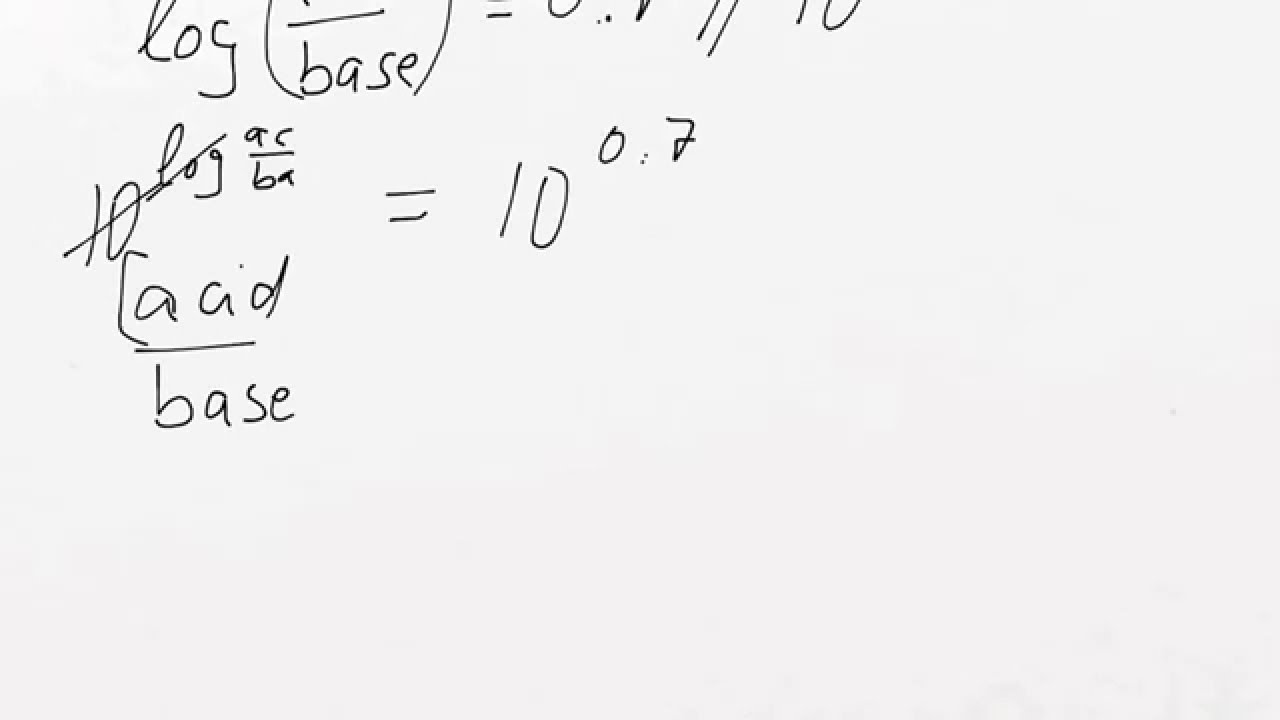 log( /base) = 0.7 // 10
10^log ac/ba = 10^0.7
[acid
base